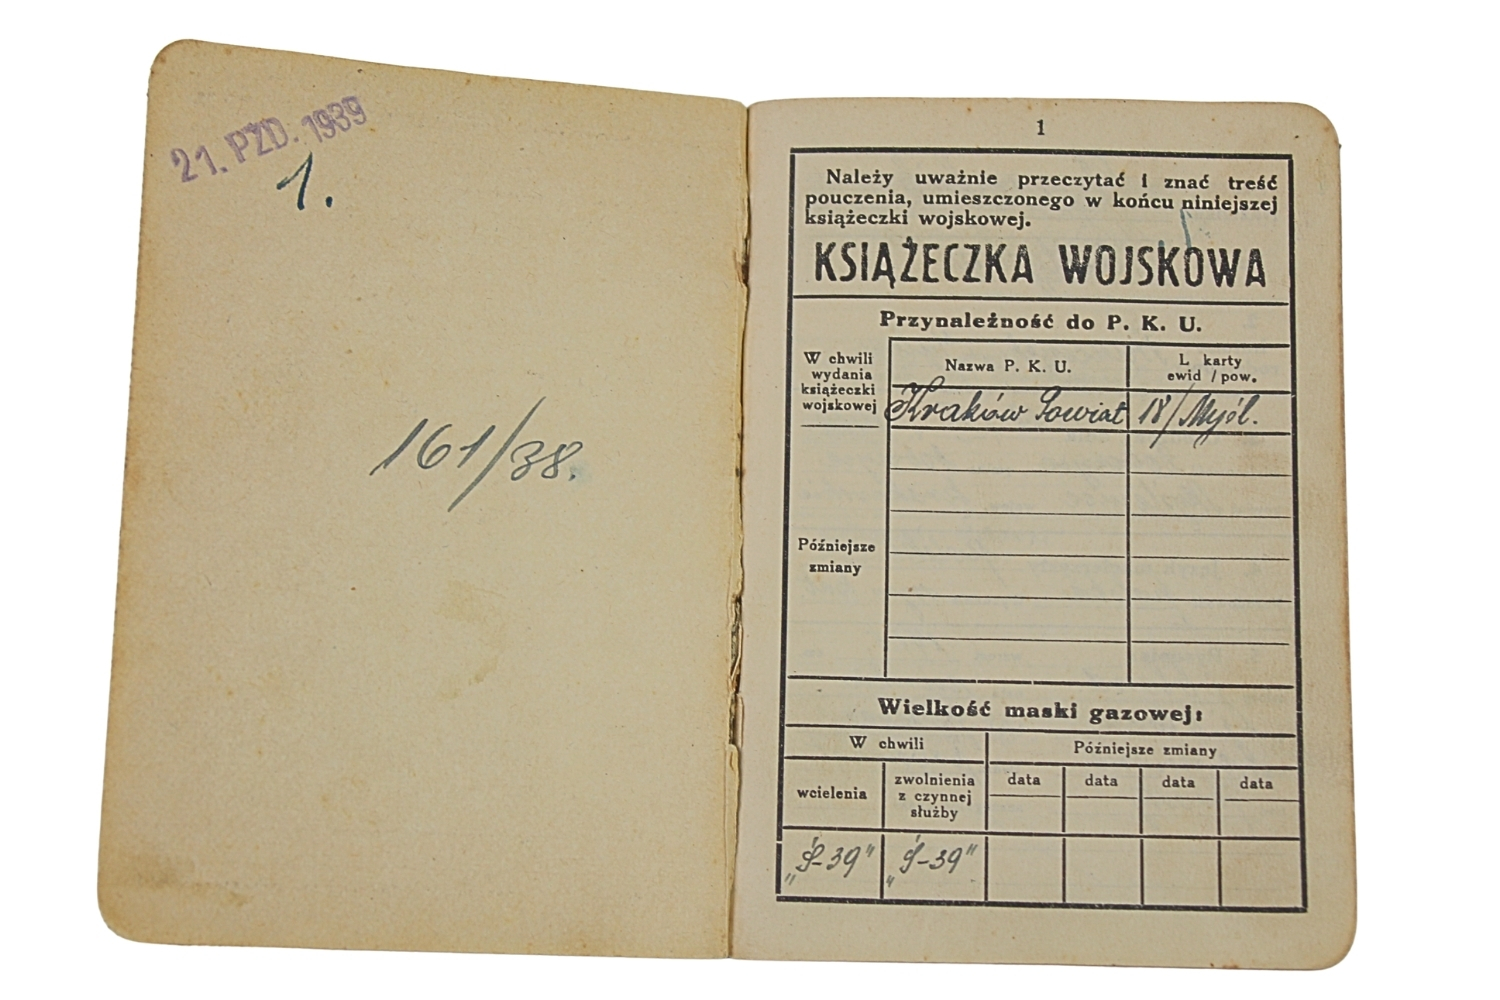 21. PZD. 1939
1.
161/38.
1
Należy uważnie przeczytać i znać treść
pouczenia, umieszczonego w końcu niniejszej
książeczki wojskowej.
KSIĄŻECZKA WOJSKOWA
Przynależność do P. K. U.
W chwili
wydania
książeczki
wojskowej
Nazwa P. K. U.
L karty
ewid / pow.
Kraków Powiat
18/Myśl.
Późniejsze
zmiany
Wielkość maski gazowej:
W chwili
Późniejsze zmiany
wcielenia
zwolnienia
z czynnej
służby
data
data
data
data
„Ś-39"
„Ś-39"